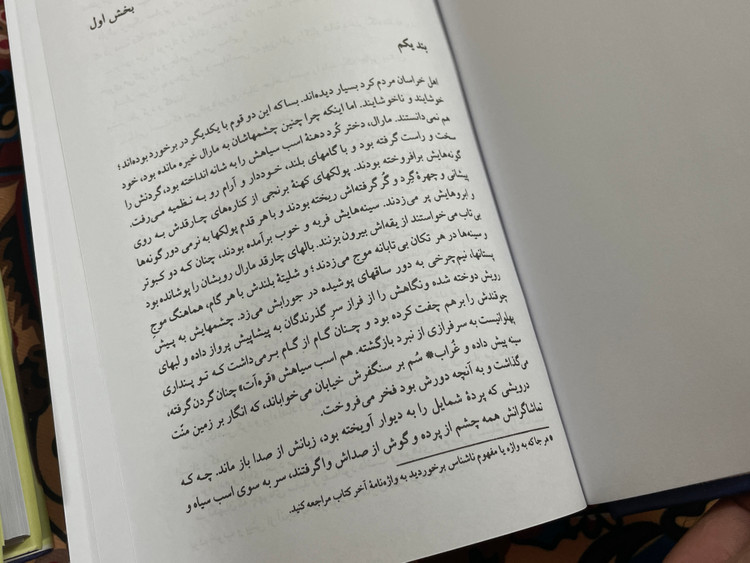 بخش اول
بند یکم
اهل خراسان مردم کرد بسیار دیده‌اند. بسا که این دو قوم با یکدیگر در برخورد بوده‌اند؛
خوشایند و ناخوشایند. اما اینکه چرا چنین چشمهاشان به مارال خیره مانده بود، خود
هم نمی‌دانستند. مارال، دختر کُرد دهنهٔ اسب سیاهش را به شانه انداخته بود، گردنش را
سخت و راست گرفته بود و با گامهای بلند، خوددار و آرام رو به نظمیه می‌رفت.
گونه‌هایش برافروخته بودند. پولکهای کهنهٔ برنجی از کناره‌های چارقدش به روی
پیشانی و چهرهٔ گِرد و گُر گرفته‌اش ریخته بودند و با هر قدم پولکها به نرمی دور گونه‌ها
و ابروهایش پر می‌زدند. سینه‌هایش فربه و خوب برآمده بودند، چنان که دو کبوتر
بی‌تاب می‌خواستند از یقه‌اش بیرون بزنند. بالهای چارقد مارال رویشان را پوشانده بود
و سینه‌ها در هر تکان بی‌تابانه موج می‌زدند؛ و شلیتهٔ بلندش با هر گام، هماهنگ موج
پستانها، نیم‌چرخی به دور ساقهای پوشیده در جورابش می‌زد. چشمهایش به پیشِ
رویش دوخته شده و نگاهش را از فراز سرِ گذرندگان به پیشاپیش پرواز داده و لبهای
چوقندش را بر هم چفت کرده بود و چنان گام از گام برمی‌داشت که تو پنداری
پهلوانیست به سرفرازی از نبرد بازگشته. هم اسب سیاهش «قره‌آت» چنان گردن گرفته،
سینه پیش داده و غُراب* سُم بر سنگفرش خیابان می‌خواباند، که انگار بر زمین منّت
می‌گذاشت و به آنچه دورش بود فخر می‌فروخت.
درویشی که پردهٔ شمایل را به دیوار آویخته بود، زبانش از صدا باز ماند. چه که
تماشاگرانش همه چشم از پرده و گوش از صداش واگرفتند، سر به سوی اسب سیاه و
* هر جا که به واژه یا مفهوم ناشناس برخوردید به واژه‌نامهٔ آخر کتاب مراجعه کنید.